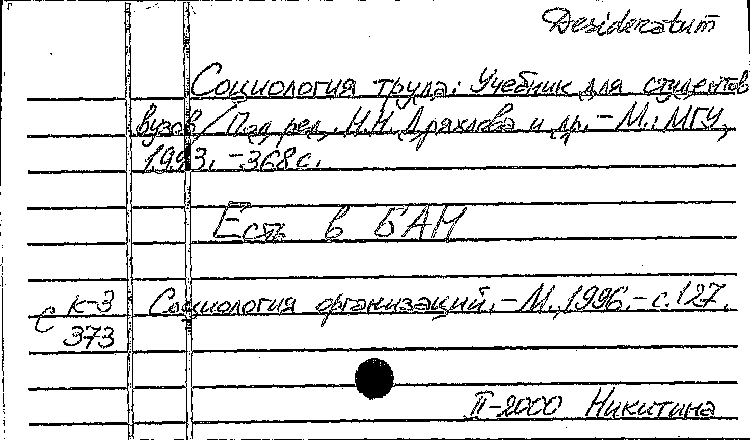 Desideratum
Социология труда: Учебник для студентов
вузов / Под ред. Н.Н. Дряхлова и др. – М.: МГУ,
1993. – 368 с.
Есть в БАН
С К-3
373
Социология организаций. – М., 1996. – с. 127.
II-2000 Никитина